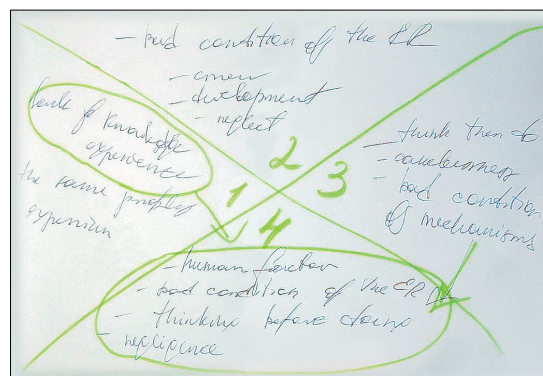 - bad condition of the ER
- crew
- development
- neglect
2
lack of knowledge
experience
the same
1
3
- think then do
- carelessness
- bad condition
of mechanisms
4
- human factor
- bad condition of the ER
- thinking before doing
- negligence